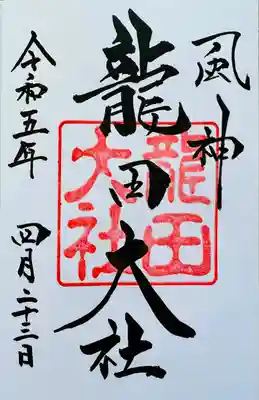 風神
龍田大社
龍田
大社
令和五年
四月二十三日